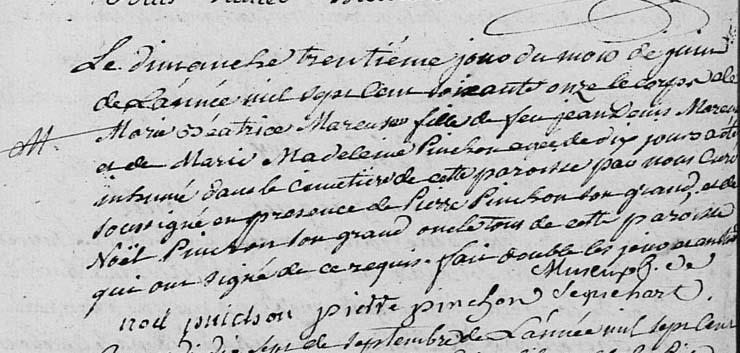 Le dimanche trentiéme jour du mois de juin
de L'année mil sept cent soixante onze le corps de
Marie Béatrice fille de feu jean Denis
et de Marie Madeleine Pinchon agee de dix jours a été
inhumé dans le cimetiere de cette paroisse par nous Curé
soussigné, en presence de Pierre Pinchon son grand, et de
Noël Pinchon son grand oncle tous de cette paroisse
qui ont signé de ce requis. fait double les jour
de
noel pinchon pierre pinchon Sequehart.
sept de septembre de L'année mil sept cent